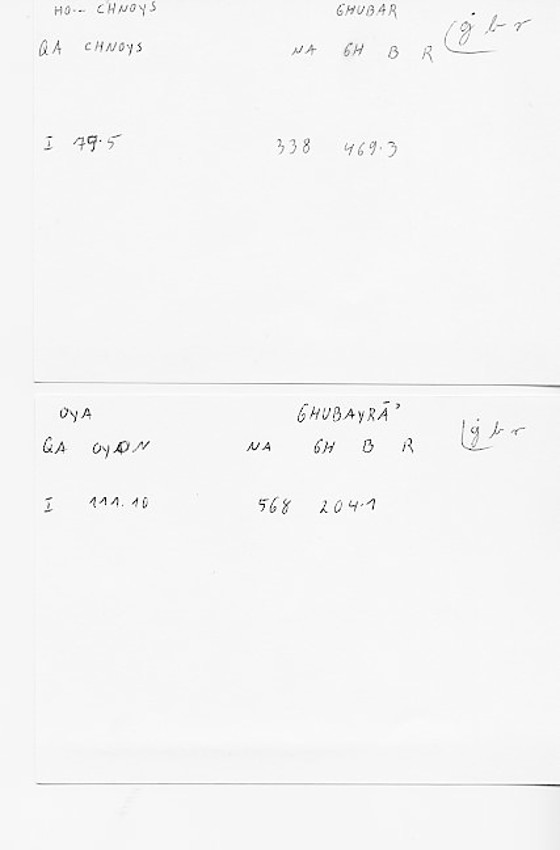 HO-- CHNOYS GHUBAR
QA CHNOYS NA GH B R ġ b r
I 79.5 338 469.3
OYA GHUBAYRĀ'
QA OYON NA GH B R ġ b r
I 111.10 568 204.1